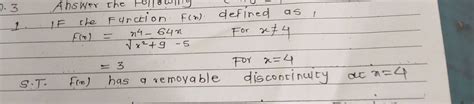 Q.3 Answer the Following
1. IF the Function F(x) defined as,
F(x) = x⁴ - 64x / √x²+9 - 5 For x≠4
= 3 For x=4
S.T. F(x) has a removable discontinuity at x=4